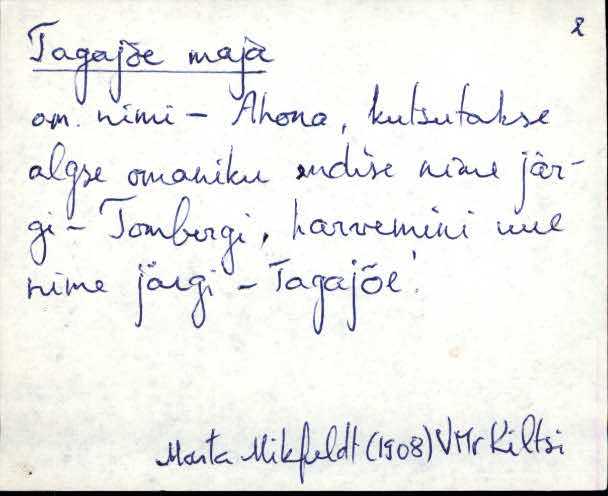 2
Tagajõe maja
om. nimi - Ahona, kutsutakse
algse omaniku endise nime jär-
gi - Tombergi, harvemini uue
nime järgi - Tagajõe!
Marta Mikfeldt (1908) VMr Kiltsi